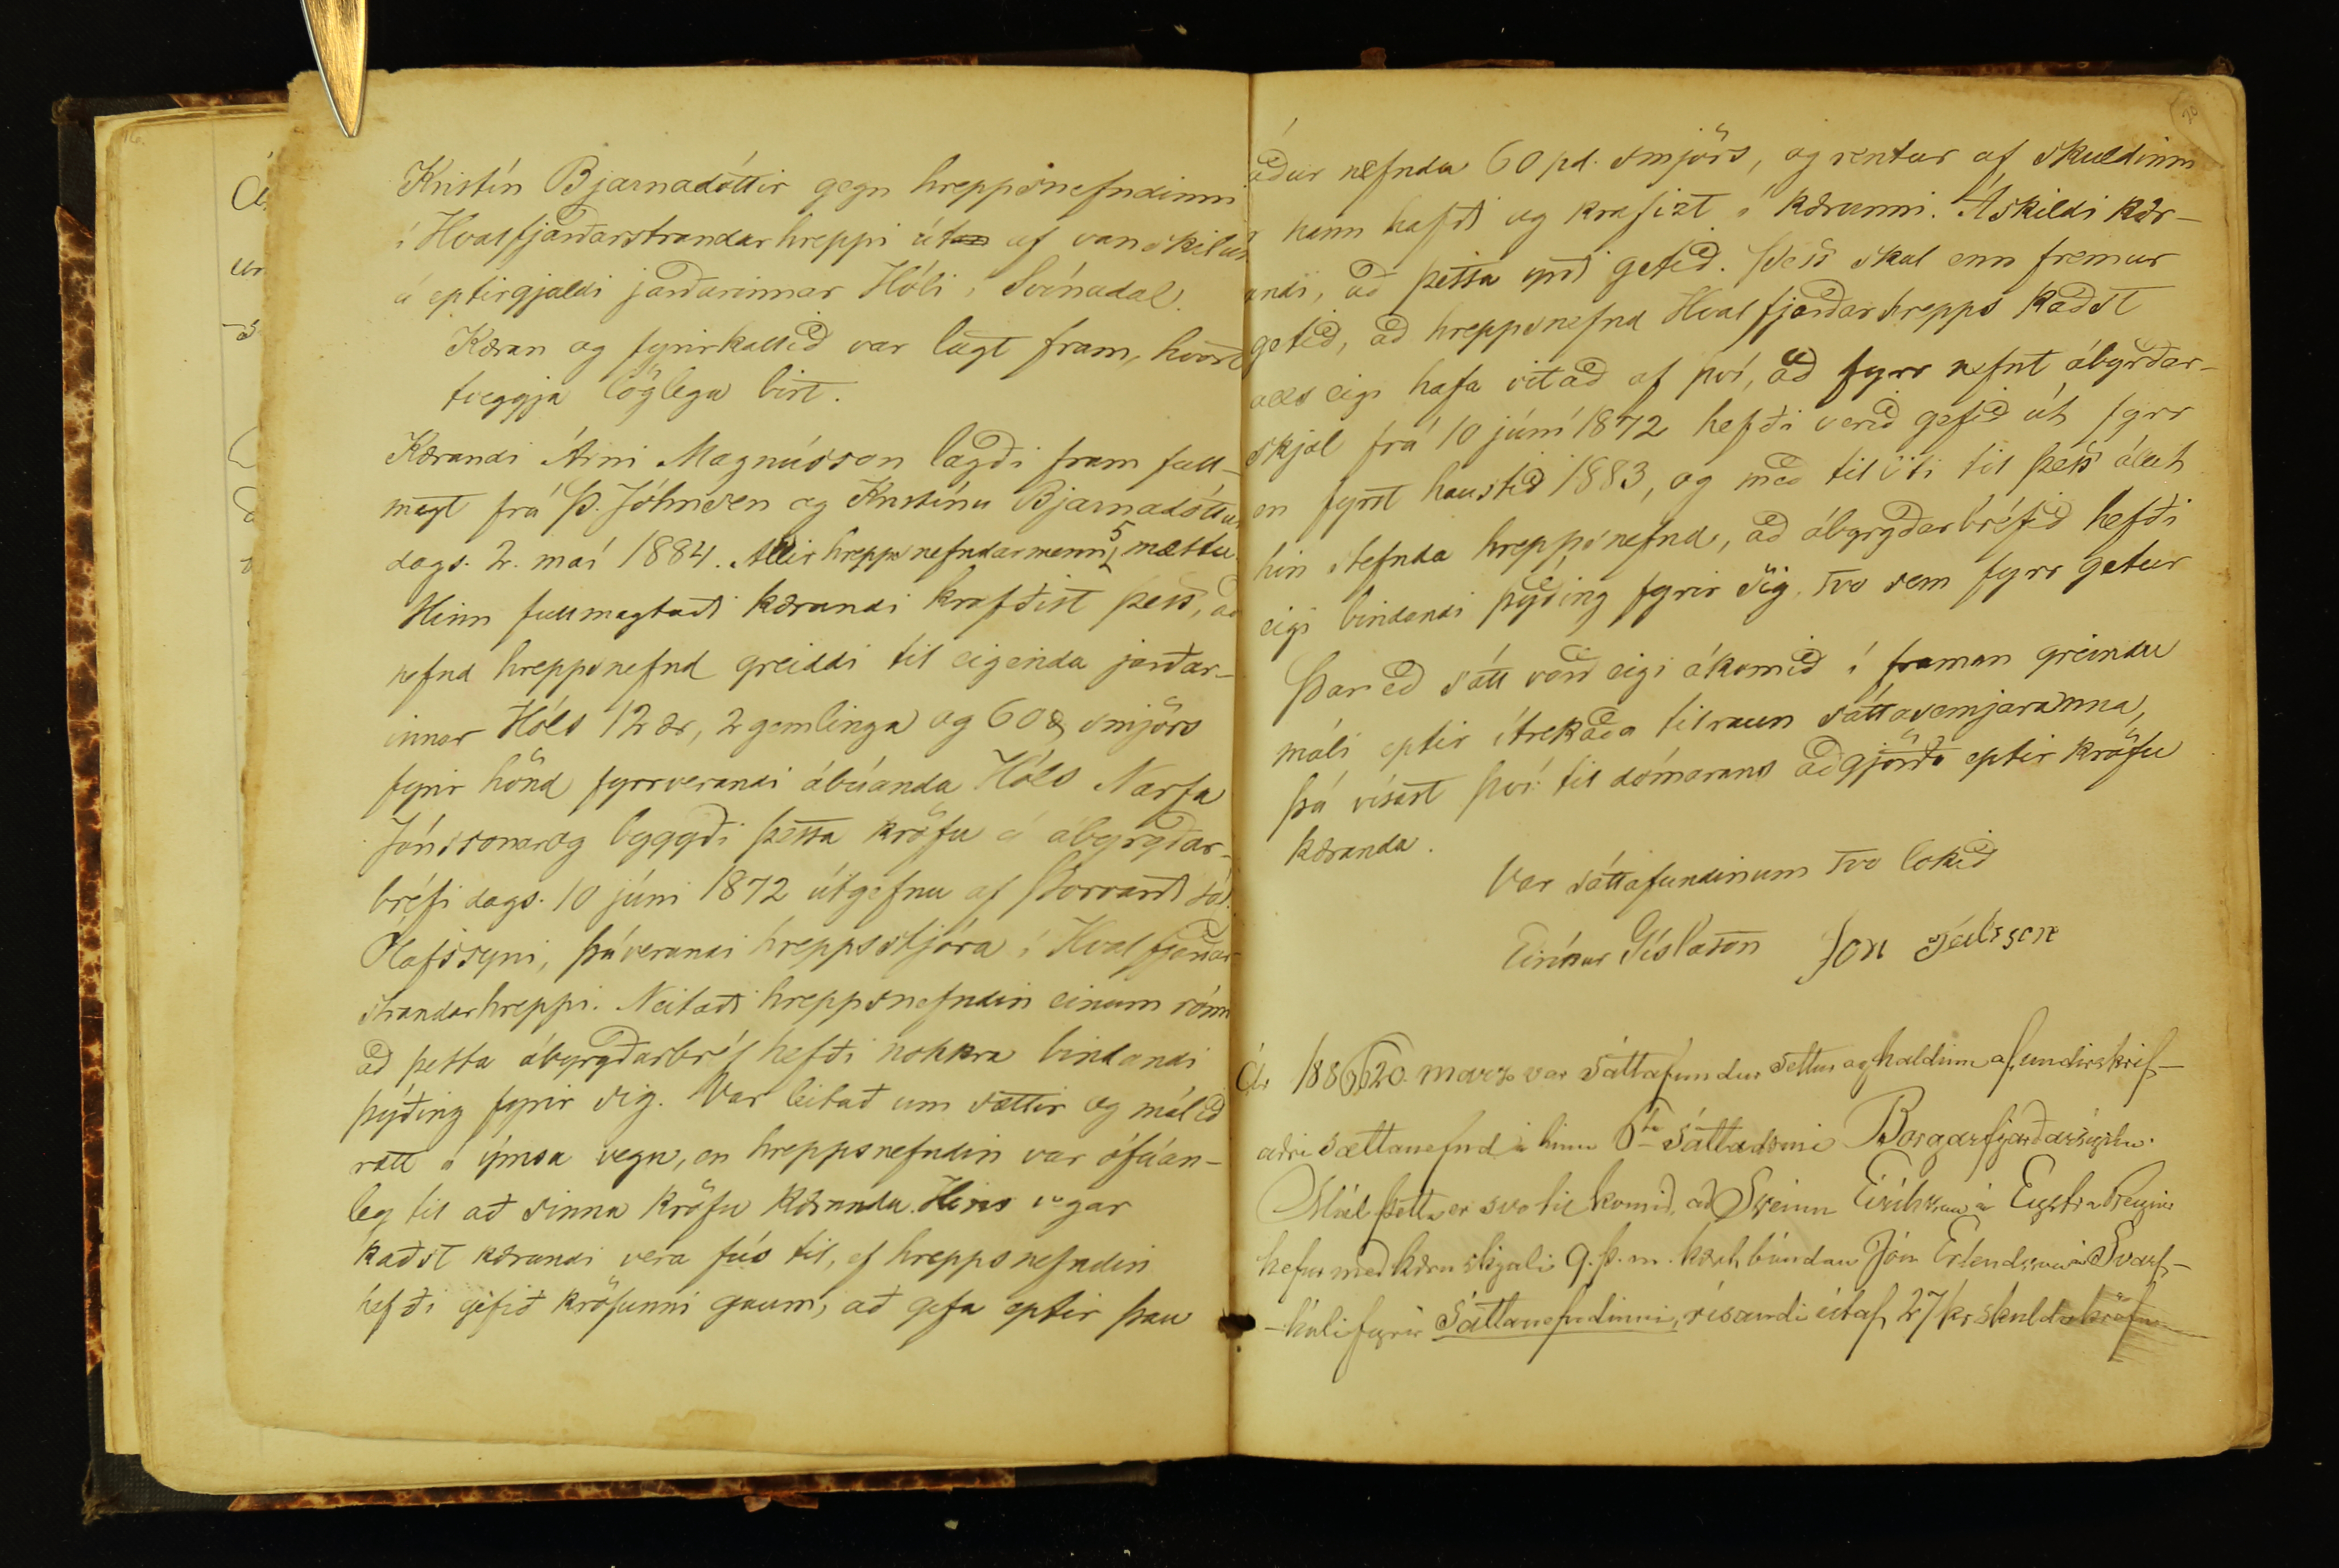 Kristín Bjarnadóttir gegn hreppsnefndinni
í Hvalfjarðarstrandarhreppi út af vanskilum
á eptirgjaldi jarðarinnar Hóli í Svínadal.
Kæran og fyrirkallið var lagt fram, hvort
tveggja löglega birt.
Kærandi Árni Magnússon lagði fram full-
magt frá Þ. Johnsen og Kristínu Bjarnadóttur
dags. 2. maí 1884. Allir hreppsnefndarmenn 5 mættu
Hinn fullmagtaði kærandi krafðist þess, að
nefnd hreppsnefnd greiddi til eigenda jarðar-
innar Hóls 12 ær, 2 gemlinga og 60 ℔ smjörs
fyrir hönd fyrrverandi ábúanda Hóls Narfa
Jónssonar og byggði þessa kröfu á ábyrgðar-
bréfi dags. 10 júni 1872 útgefnu af Þorvarði sál.
Olafssyni, þáverandi hreppsstjóra í Hvalfjarðar-
strandarhreppi. Neitaði hreppsnefndin einum róm
að þetta ábyrgðarbréf hefði nokkra bindandi
þýðing fyrir sig. Var leitað um sættir og málið
rætt á ýmsa vegu, en hreppsnefndin var ófáan-
leg til að sinna kröfu kæranda. Hins vegar
kaðst kærandi vera fús til, ef hreppsnefndin
hefði gefið kröfunni gaum, að gefa eptir þau
20
áður nefnda 60 pd. smjörs, og rentur af skuldinni
hann hafði og krafizt í kærunni. Áskildi kær-
andi, að þessa yrði getið. Þess skal enn fremur
getið, að hreppsnefnd Hvalfjarðarhrepps kaðst
alls eigi hafa vitað af því, að fyrr nefnt ábyrðar-
skjal frá 10 júní 1872 hefði verið gefið út fyrr
en fyrst haustið 1883, og með tilliti til þess áleit
hin stefnda hreppsnefnd, að ábyrgðarbréfið hefði
eigi bindandi þýðing fyrir sig, svo sem fyrr getur
Þareð sátt varð eigi ákomið í framan greindu
máli eptir ítrekaða tilraun sáttasemjaranna,
þá vísast því til dómarans aðgjörða eptir kröfu
kæranda.
Var sáttafundinum svo lokið
Eiríkur Gíslason Jón Teitsson
Ár 1886 20. marz var sáttafundur settur og haldinn af undirskrif-
aðri sættanefnd í hinu 6te sáttadæmi Borgarfjarðarsýslu.
Mál þetta er svo til komið, að Sveinn Eiríksson á Eystra Reyni
hefur með kæruskjali 9. þ. m. kært bóndan Jón Erlendsson á Svarf-
-hóli fyrir Sáttanefndinni, rísandi útaf 27 kr skuldakröfu